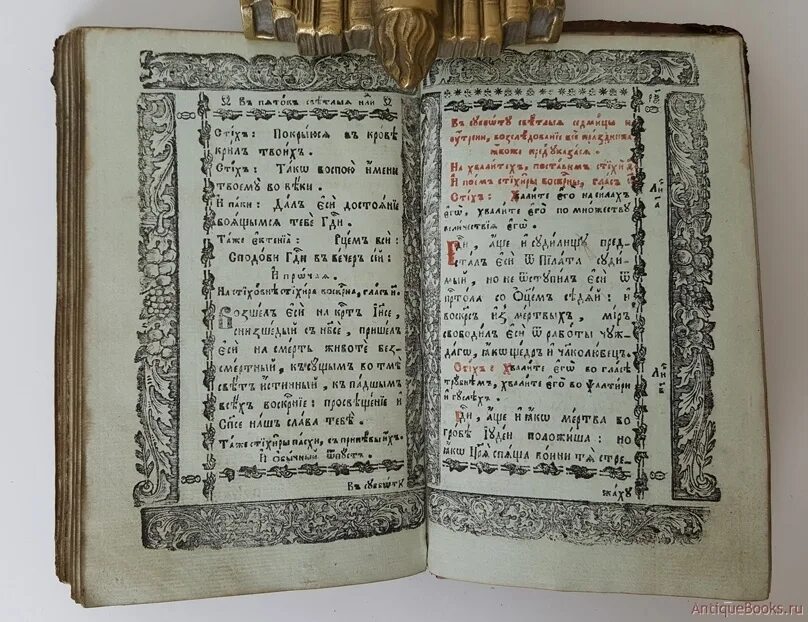 Въ пѧтокъ свѣтлыѧ н҃ли
Стїхъ: Покрыюсѧ въ кровѣ
крилъ твоихъ.
Стїхъ: Такѡ воспою имени
твоемꙋ во вѣки.
И паки: Далъ єси достоѧнїе
боѧщымсѧ тебе Гд҃и.
Таже єктенїа: Рцемъ вси:
Сподоби Гд҃и въ вечеръ сїй:
И прочаѧ.
На стїховнѣ стїхира воскр҃на, гласъ и҃.
Возшелъ єси на крⷭ҇тъ Іи҃се,
снизшедый съ нб҃се, пришелъ
єси на смерть животе без-
смертный, къ сꙋщымъ во тмѣ
свѣтъ истинный, къ падшымъ
всѣхъ воскр҃нїе: просвѣщенїе и
Сп҃се нашъ слава тебѣ.
Таже стїхиры пасхи, съ припѣвы ихъ.
И обычный ѿпꙋстъ.
Въ сꙋббѡтꙋ
Въ сꙋббѡтꙋ свѣтлыѧ седмицы на
оутрени, возслѣдованїе все праздника
ꙗкоже предꙋказасѧ.
На хвалитехъ, поставимъ стїхи д҃
И поимъ стїхиры воскр҃ны, гласъ
Стїхъ: Хвалите єго на силахъ
єгѡ, хвалите єго по множествꙋ
величествїѧ єгѡ.
Гд҃и, аще и сꙋдилищꙋ пред-
сталъ єси ѿ Пїлата сꙋди-
мый, но не ѿстꙋпилъ єси ѿ
прⷭ҇тола со Оц҃емъ сѣдѧй: и
воскресъ из мертвыхъ, мїръ
свободилъ єси ѿ работы чꙋж-
дагѡ, ꙗкѡ щедръ и чл҃колюбецъ.
Стїхъ: Хвалите єгѡ во гласѣ
трꙋбнѣмъ, хвалите єго во ѱалтири
и гꙋслехъ.
Гд҃и, аще и ꙗкѡ мертва во
гробѣ Іꙋдеи положиша: но
ꙗкѡ Цр҃ѧ спѧща воини тѧ стре-
жахꙋ
AntiqueBooks.ru